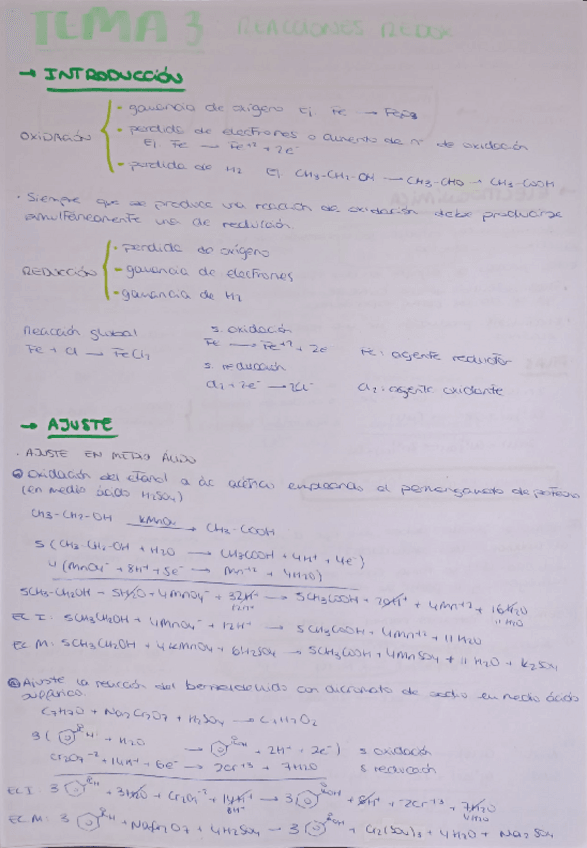 TEMA 3 REACCIONES REDOX
→ INTRODUCCIÓN
- ganancia de oxígeno Ej Fe → Fe₂O₃
OXIDACIÓN - perdida de electrones o aumento de nº de oxidación
Ej Fe → Fe⁺² + 2e⁻
- perdida de H₂ Ej CH₃-CH₂-OH → CH₃-CHO → CH₃-COOH
· Siempre que se produce una reacción de oxidación debe producirse
simultáneamente una de reducción.
- perdida de oxígeno
REDUCCIÓN - ganancia de electrones
- ganancia de H₂
Reacción global s. oxidación
Fe + Cl → FeCl₂ Fe → Fe⁺² + 2e⁻ Fe: agente reductor
s. reducción
Cl₂ + 2e⁻ → 2Cl⁻ Cl₂: agente oxidante
→ AJUSTE
· AJUSTE EN MEDIO ÁCIDO
Oxidación del etanol a ác acético empleando el permanganato de potasio
(en medio ácido H₂SO₄)
CH₃-CH₂-OH KMnO₄ → CH₃-COOH
5 (CH₃-CH₂-OH + H₂O → CH₃COOH + 4H⁺ + 4e⁻)
4 (MnO₄⁻ + 8H⁺ + 5e⁻ → Mn⁺² + 4H₂O)
5CH₃-CH₂OH + 5H₂O + 4MnO₄⁻ + 32H⁺ → 5CH₃COOH + 20H⁺ + 4Mn⁺² + 16H₂O
12H⁺ 11H₂O
EC I: 5CH₃CH₂OH + 4MnO₄⁻ + 12H⁺ → 5CH₃COOH + 4Mn⁺² + 11H₂O
EC M: 5CH₃CH₂OH + 4KMnO₄ + 6H₂SO₄ → 5CH₃COOH + 4MnSO₄ + 11H₂O + K₂SO₄
Ajuste la reacción del benzaldehido con dicromato de sodio en medio ácido
sulfúrico
C₇H₇O + Na₂Cr₂O₇ + H₂SO₄ → C₇H₇O₂
3( + H₂O → + 2H⁺ + 2e⁻) s oxidación
Cr₂O₇⁻² + 14H⁺ + 6e⁻ → 2Cr⁺³ + 7H₂O s reducción
EC I: 3 + 3H₂O + Cr₂O₇⁻² + 14H⁺ → 3 + 6H⁺ + 2Cr⁺³ + 7H₂O
8H⁺ 4H₂O
EC M: 3 + Na₂Cr₂O₇ + 4H₂SO₄ → 3 + Cr₂(SO₄)₃ + 4H₂O + Na₂SO₄